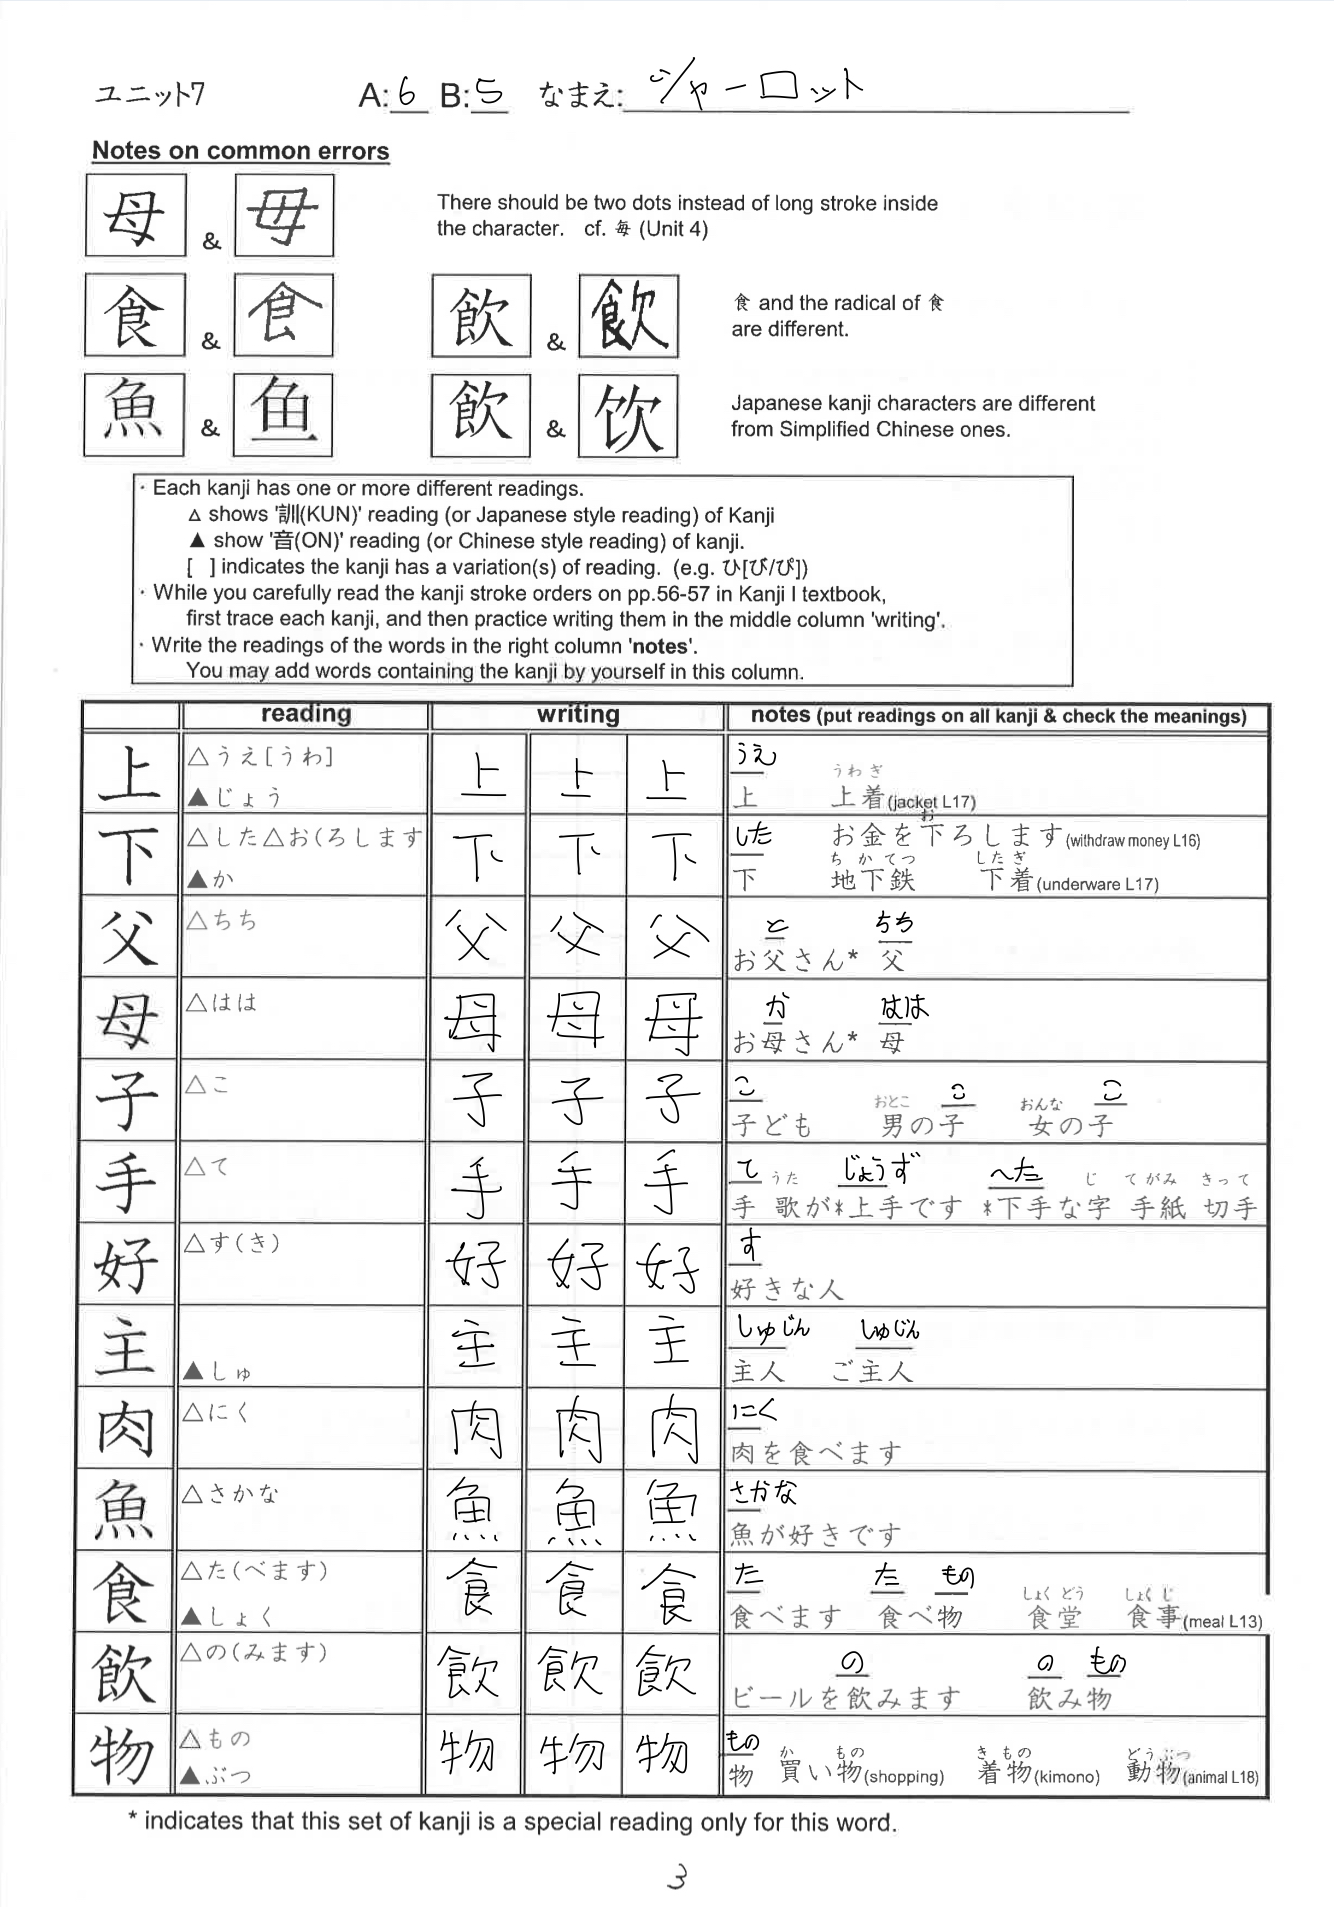 ユニット7 A:6 B:5 なまえ:シャーロット
Notes on common errors
母 & 毋 There should be two dots instead of long stroke inside
the character. cf. 毎 (Unit 4)
食 & 飲 & 食 and the radical of 食
are different.
魚 & 鱼 飲 & 饮 Japanese kanji characters are different
from Simplified Chinese ones.
· Each kanji has one or more different readings.
△ shows '訓(KUN)' reading (or Japanese style reading) of Kanji
▲ show '音(ON)' reading (or Chinese style reading) of kanji.
[ ] indicates the kanji has a variation(s) of reading. (e.g. ひ[び/ぴ])
· While you carefully read the kanji stroke orders on pp.56-57 in Kanji I textbook,
first trace each kanji, and then practice writing them in the middle column 'writing'.
· Write the readings of the words in the right column 'notes'.
You may add words containing the kanji by yourself in this column.
reading writing notes (put readings on all kanji & check the meanings)
上 △うえ[うわ] 上 上 上 うえ
うわ ぎ
▲じょう 上 上着(jacket L17)
お
下 △した△お(ろします 下 下 下 した お金を下ろします(withdraw money L16)
ち か てつ したぎ
▲か 下 地下鉄 下着(underware L17)
父 △ちち 父 父 父 と ちち
お父さん* 父
母 △はは 母 母 母 か はは
お母さん* 母
子 △こ 子 子 子 こ おとこ こ おんな こ
子ども 男の子 女の子
手 △て 手 手 手 て うた じょうず へた じ てがみ きって
手 歌が*上手です *下手な字 手紙 切手
好 △す(き) 好 好 好 す
好きな人
主 主 主 主 しゅじん しゅじん
▲しゅ 主人 ご主人
肉 △にく 肉 肉 肉 にく
肉を食べます
魚 △さかな 魚 魚 魚 さかな
魚が好きです
食 △た(べます) 食 食 食 た た もの しょく どう しょく じ
▲しょく 食べます 食べ物 食堂 食事(meal L13)
飲 △の(みます) 飲 飲 飲 の の もの
ビールを飲みます 飲み物
物 △もの 物 物 物 もの か もの き もの どうぶつ
▲ぶつ 物 買い物(shopping) 着物(kimono) 動物(animal L18)
* indicates that this set of kanji is a special reading only for this word.
3